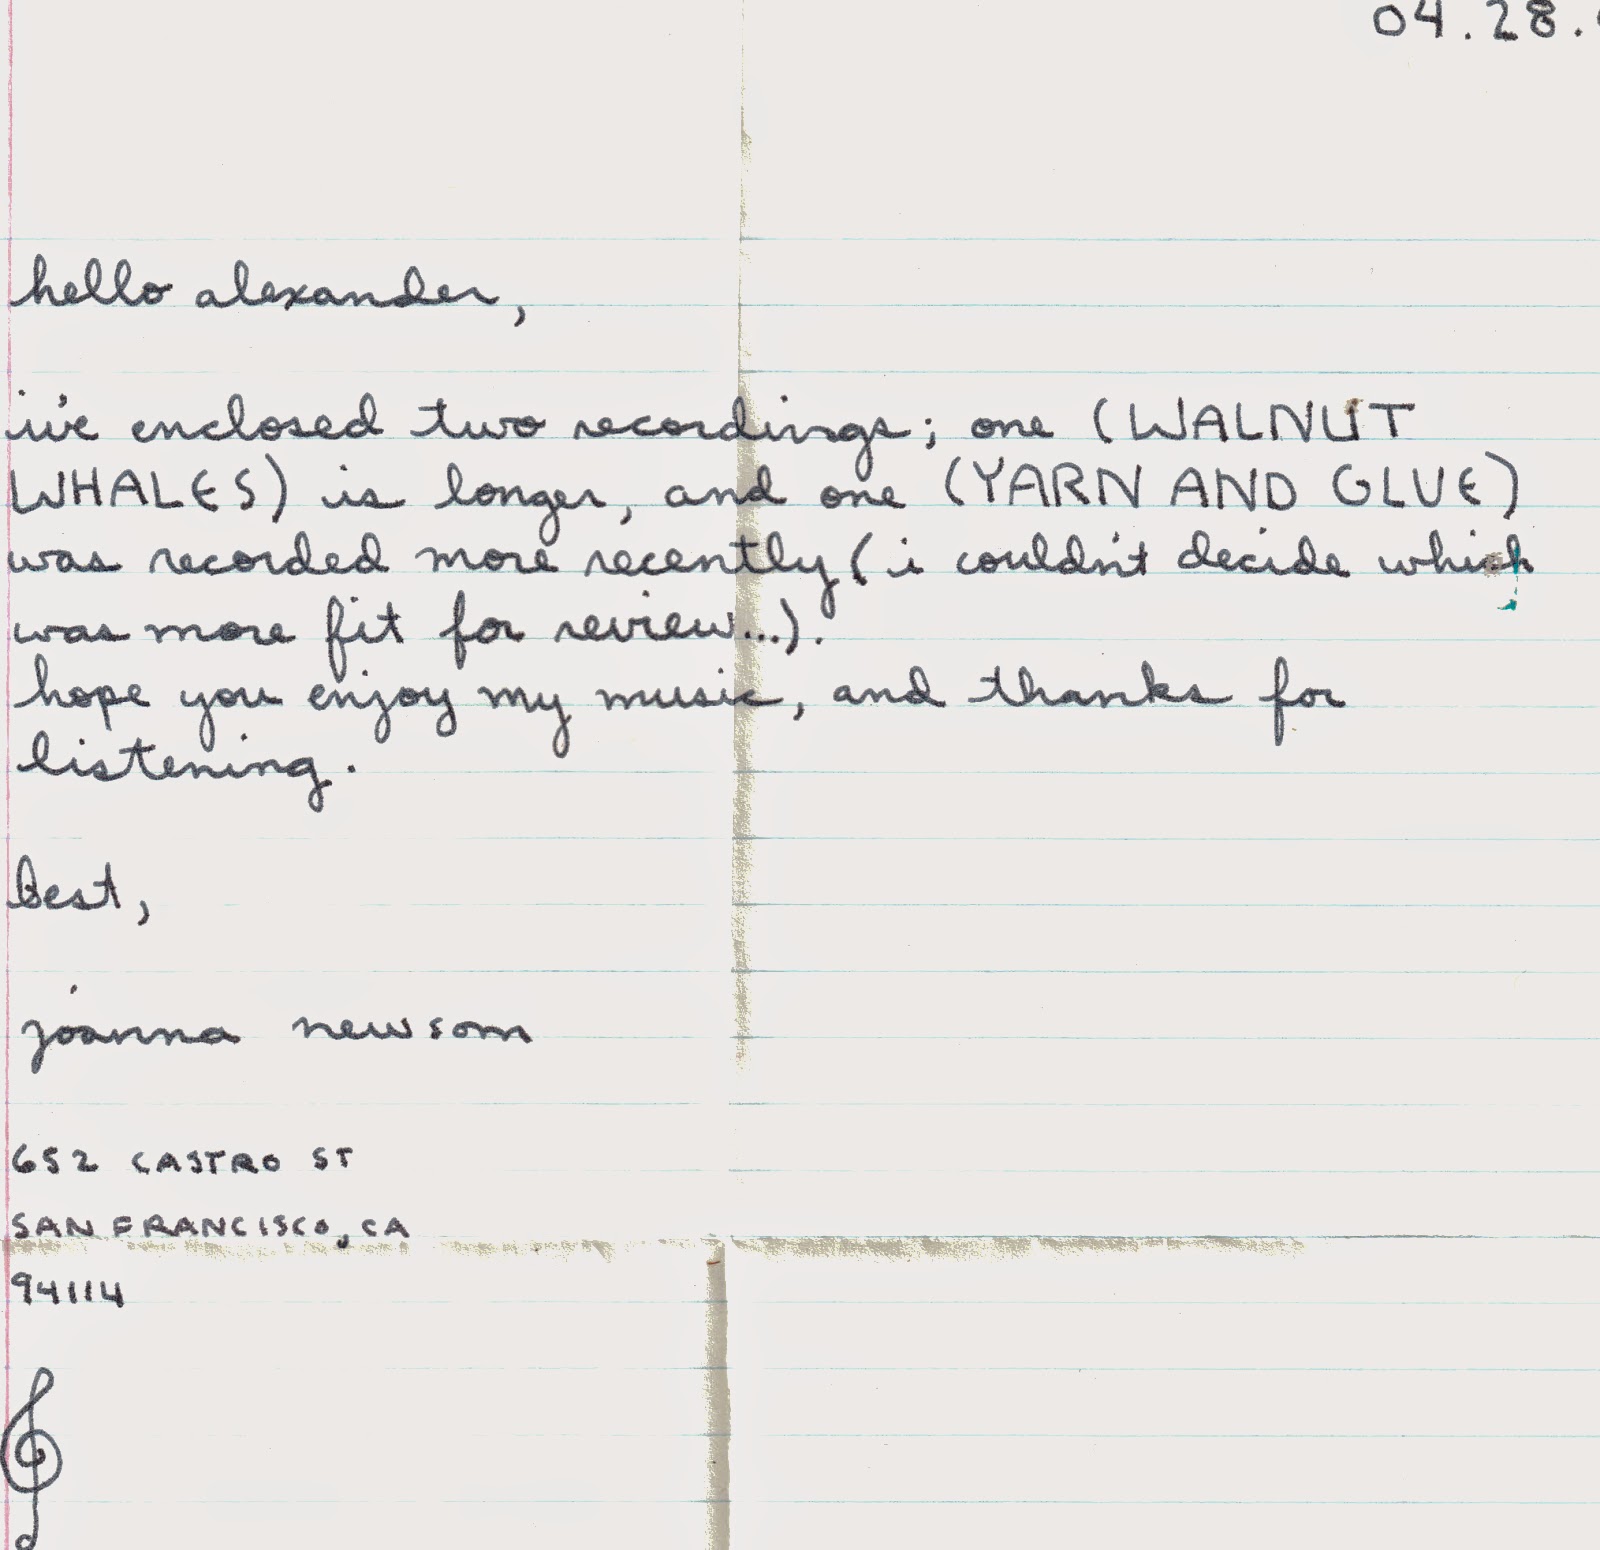 04.28.
hello alexander,
i've enclosed two recordings; one (WALNUT
WHALES) is longer, and one (YARN AND GLUE)
was recorded more recently (i couldn't decide which
was more fit for review...).
hope you enjoy my music, and thanks for
listening.
best,
joanna newsom
652 CASTRO ST
SAN FRANCISCO, CA
94114